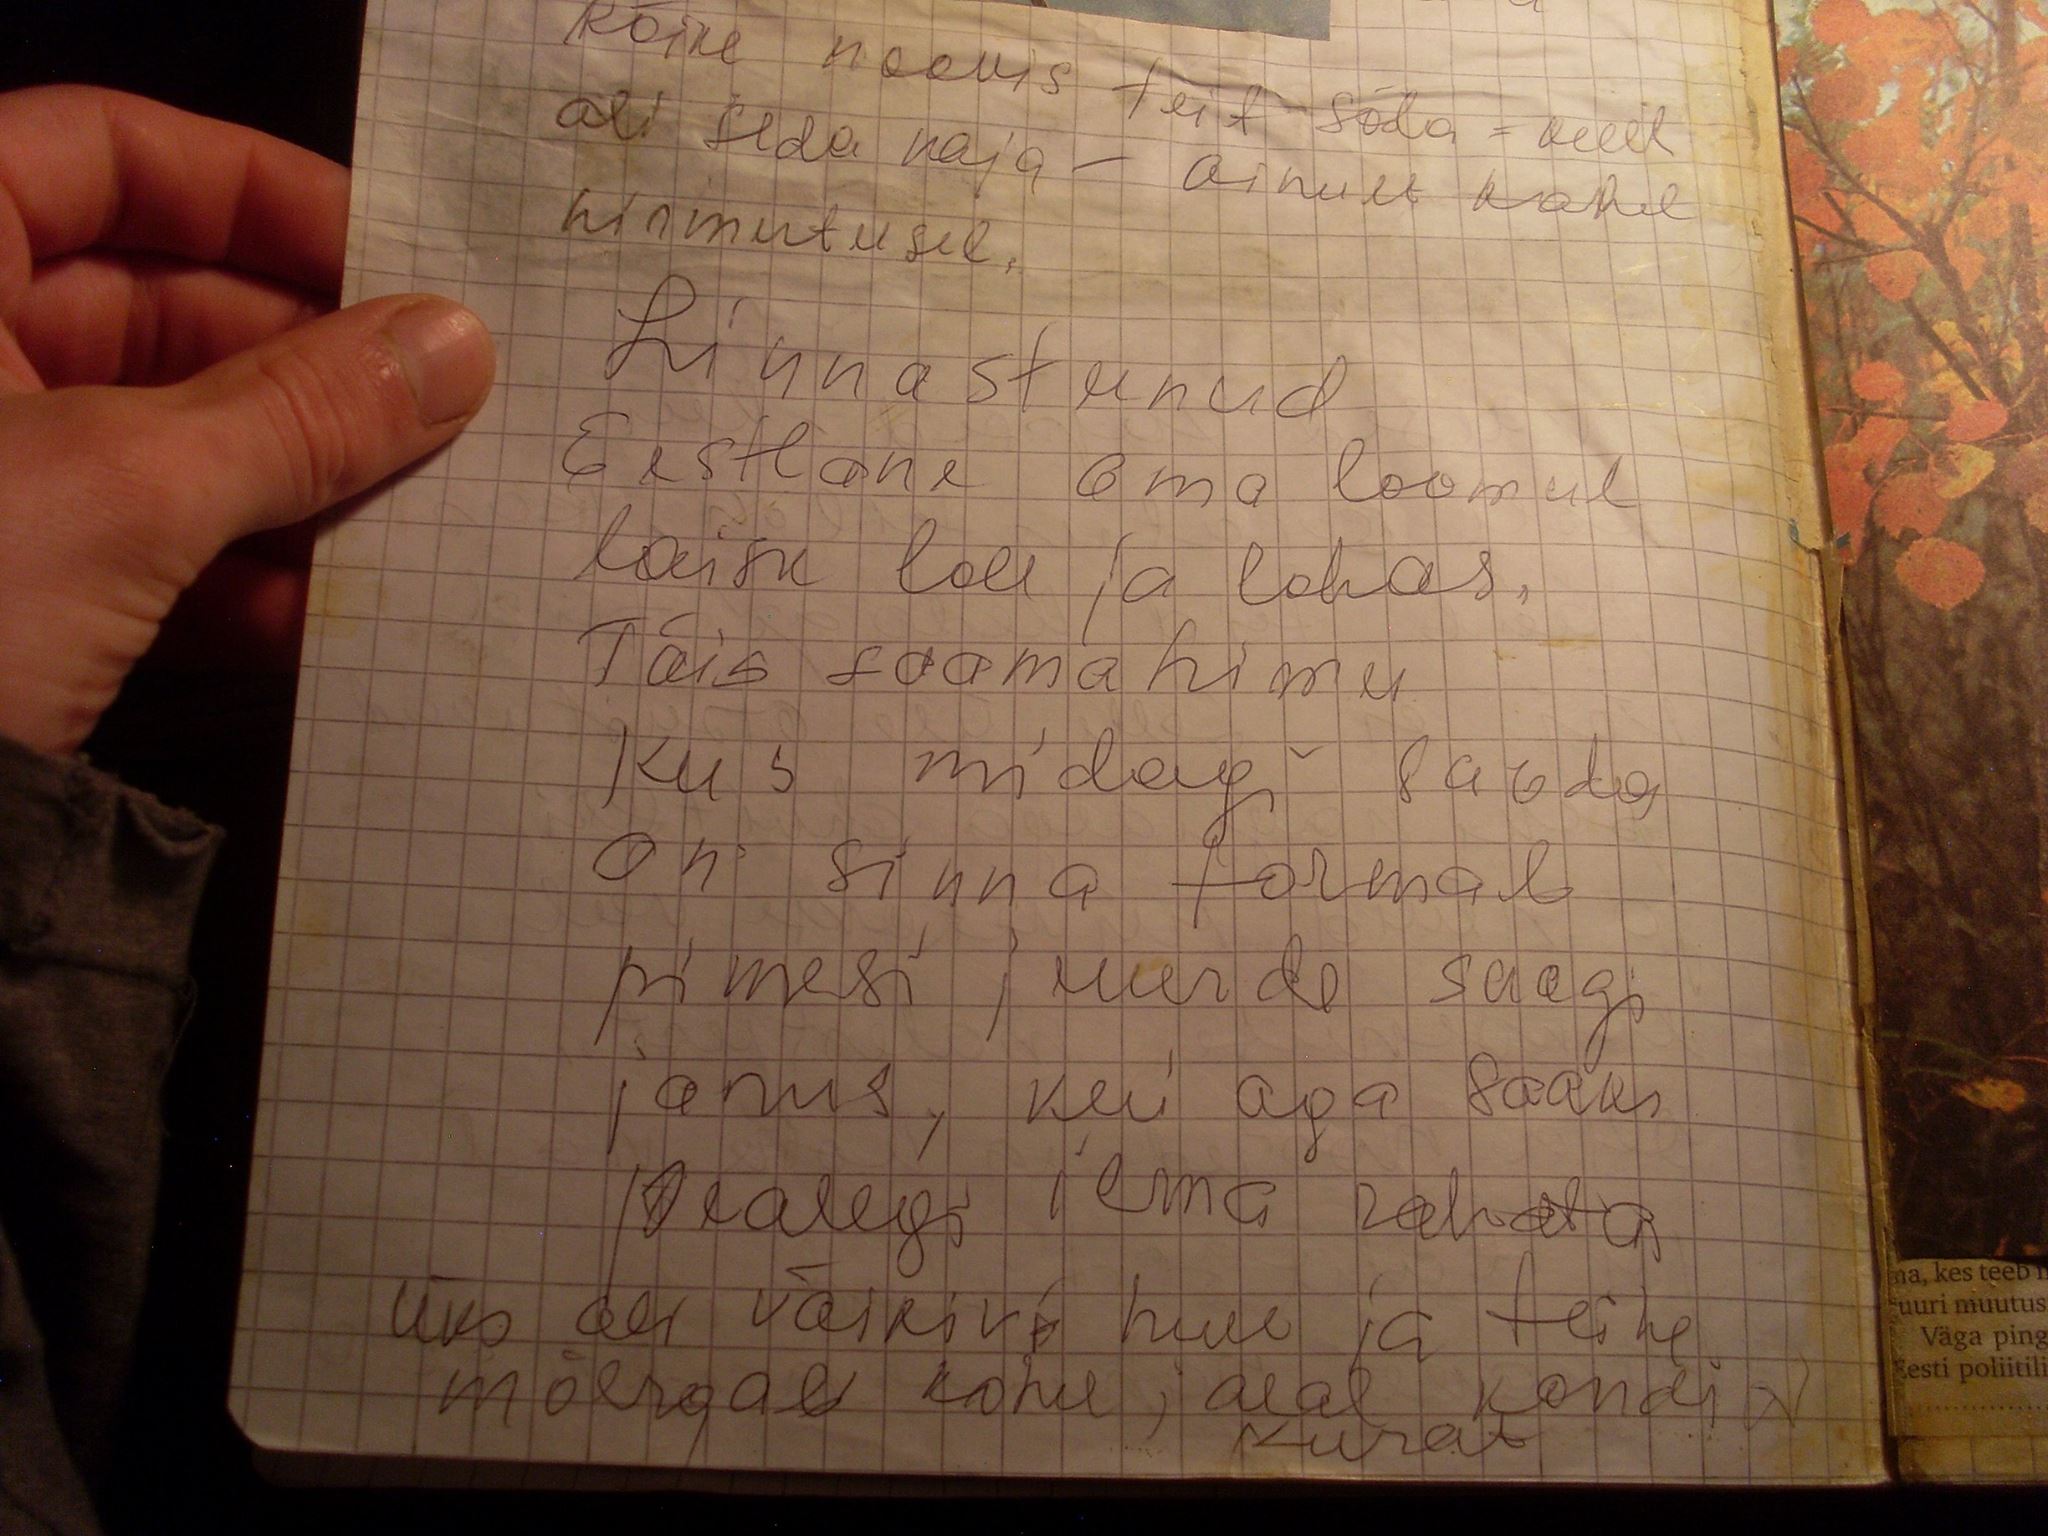 kõike noovis teilt sõda = veelt
oli seda vaja - ainult kahel
hirmutusel.
Linnastunud
Eestlane oma loomul
laisk loll ja lohas.
Täis saamahimu
Kus midagi saada
on sinna tormab
pimesi juurde saagi
janus, kui aga saaks
kealegi ilma rahata
üks oli hull ja teine
mõlrgab kohe, jalal kondi
Kurat
na, kes teeb
uuri muutus
Väga ping
Eesti poliitili